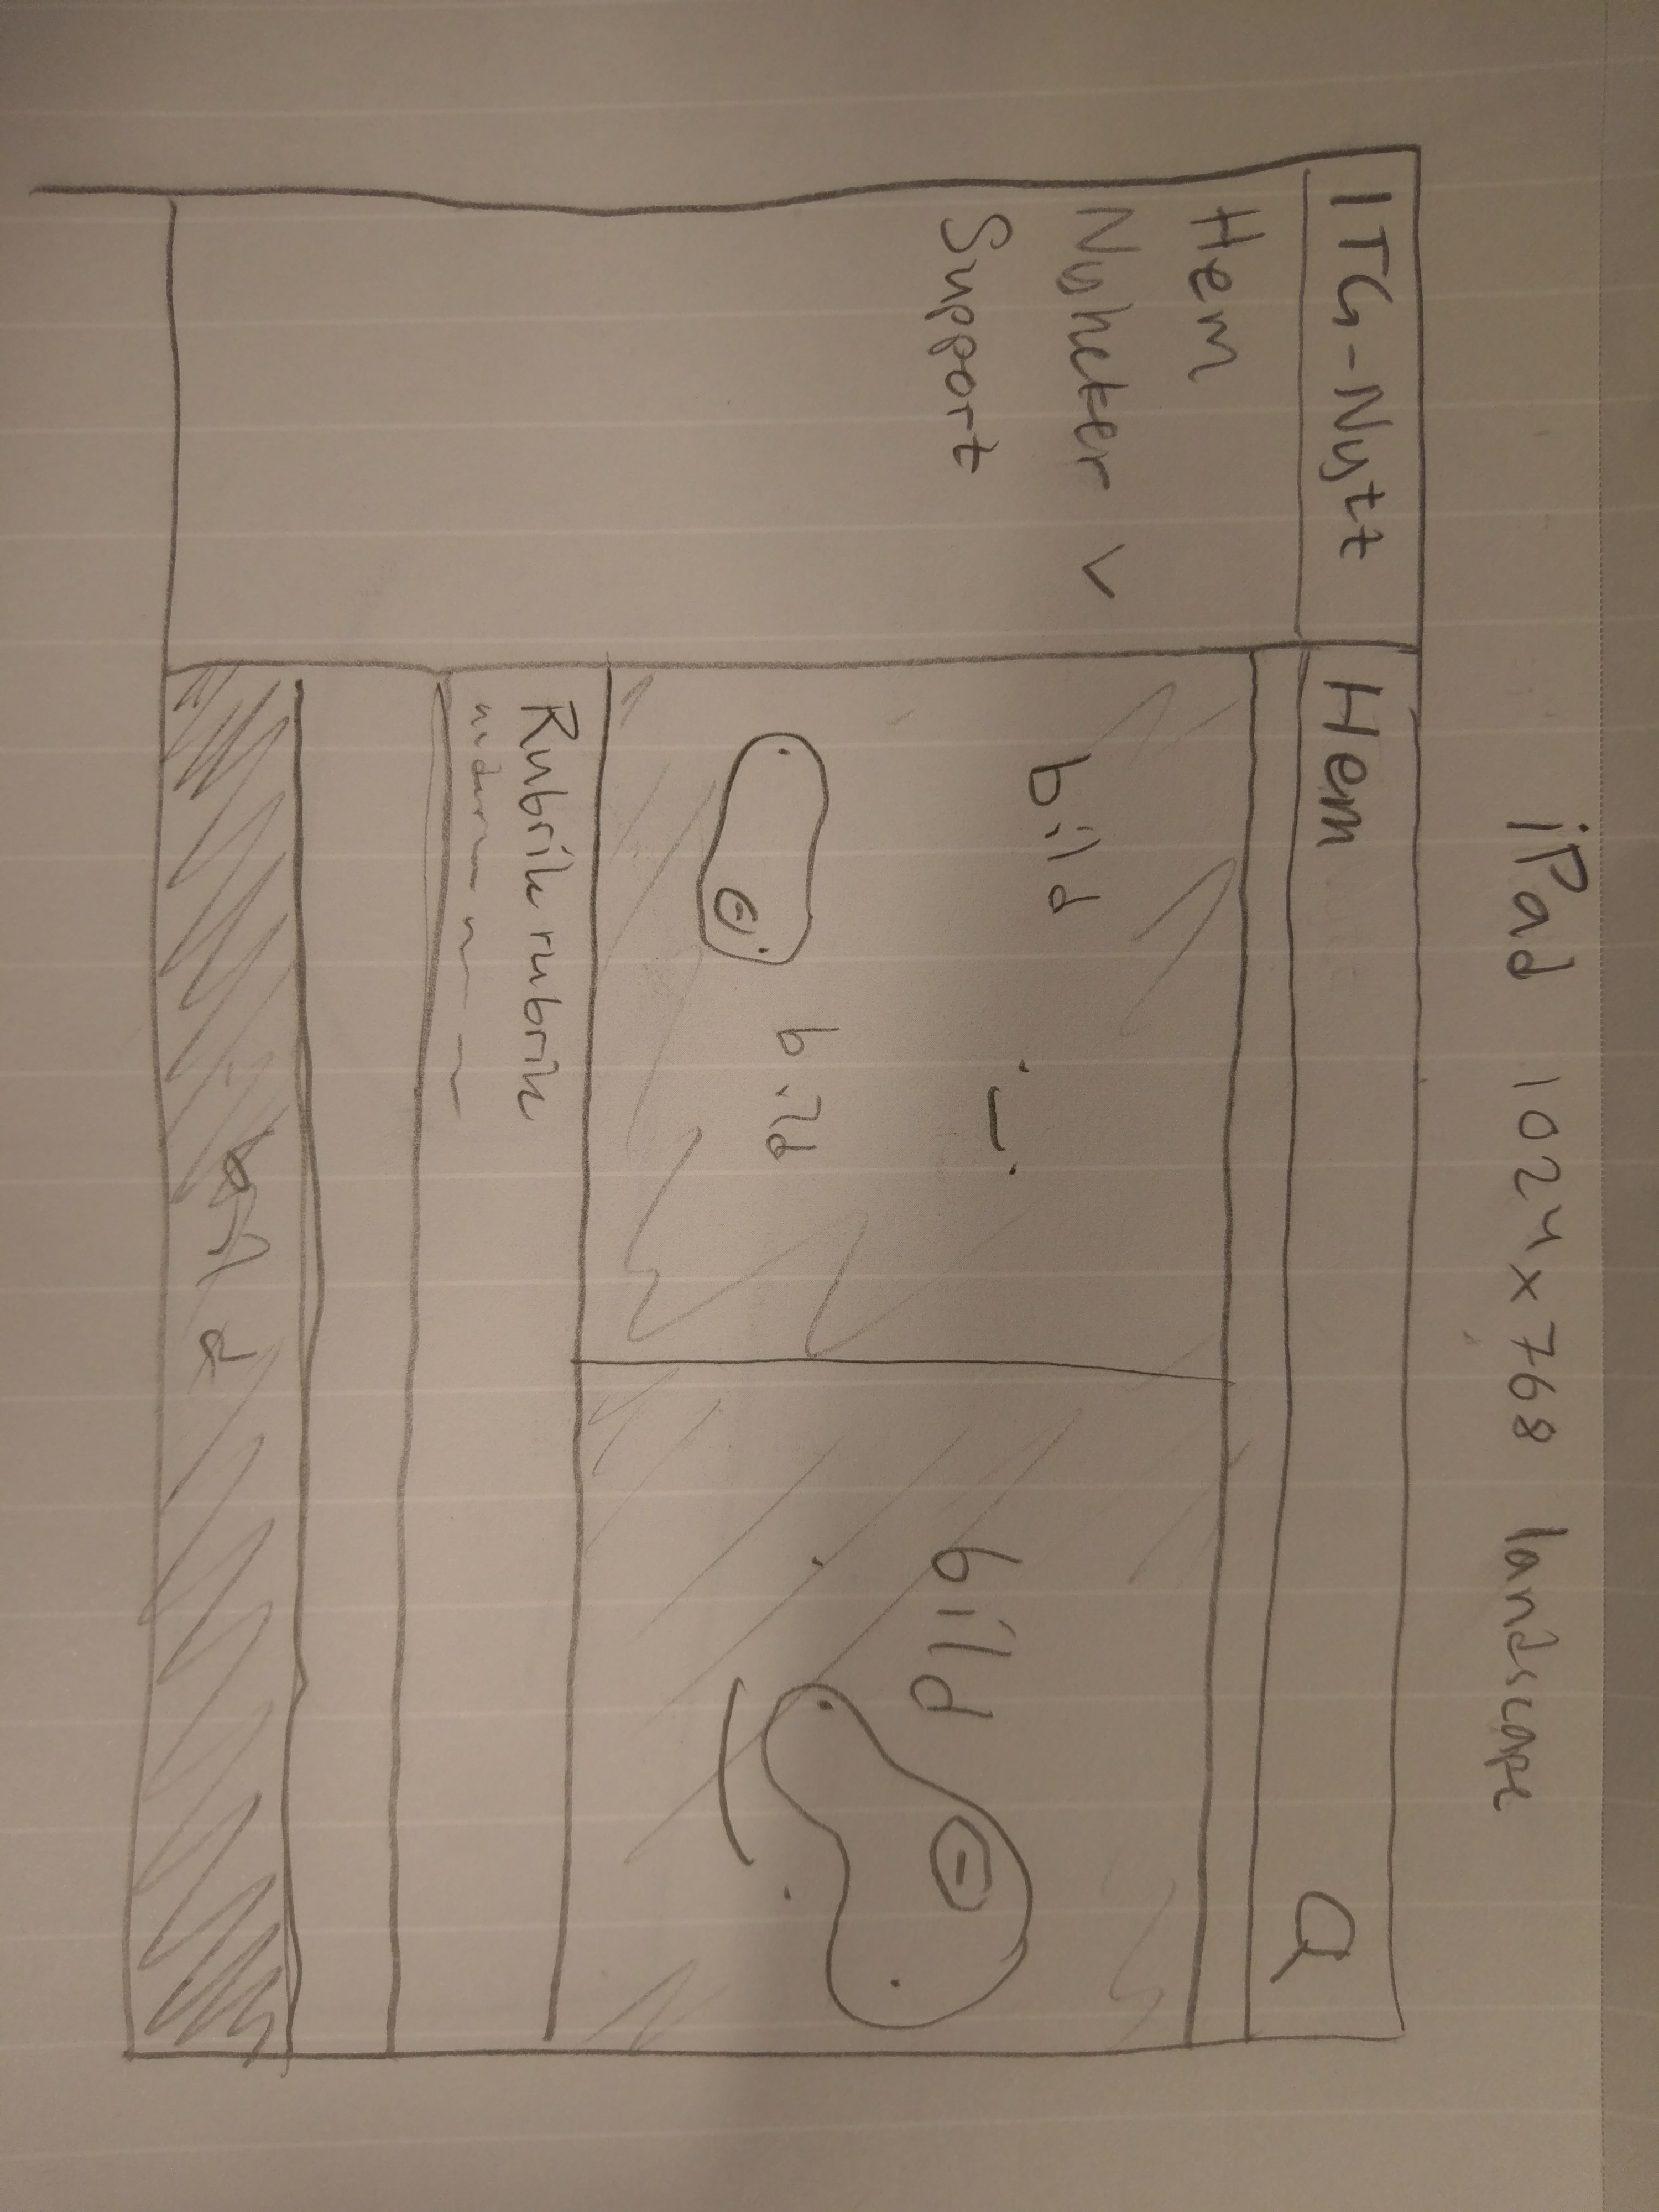 iPad 1024x768 landscape
ITG-Nytt
Hem
Hem
Nyheter
Support
bild
bild
bild
Rubrik rubrik
bild